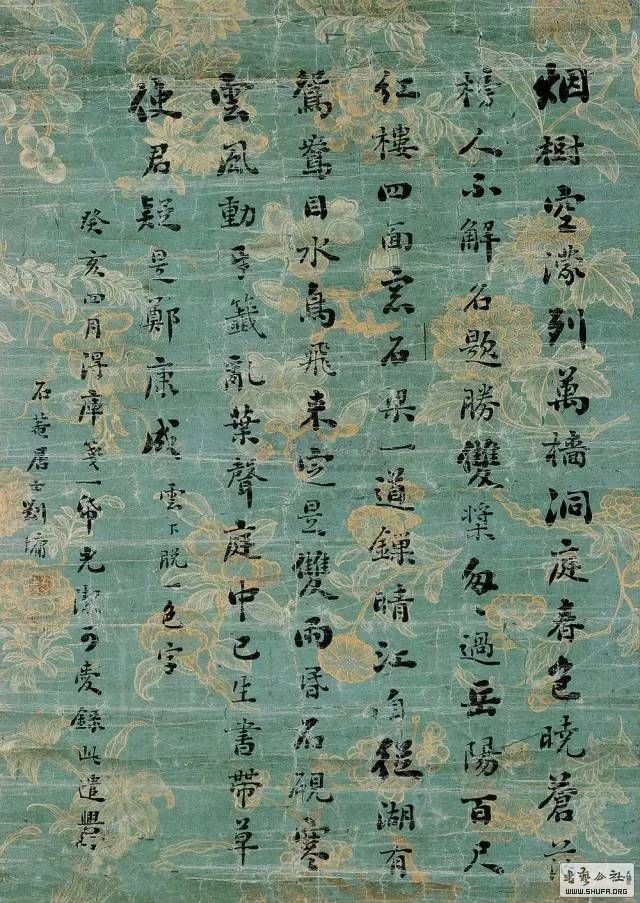 烟樹空濛列萬洞庭春色曉蒼蒼
榜人不解名題勝雙槳匆〻過岳陽百尺
紅樓四面窓石梁一道鏁晴江自從湖有
鴛鴦目水鳥飛来定是雙雨昏石硯寒
雲風動牙籤亂葉聲庭中已生書帶草
使君疑是鄭康成 雲下脫一色字
癸亥四月得庫箋一帋光潔可愛錄此遣興
石菴居士劉墉
書法公社
WWW.SHUFA.ORG